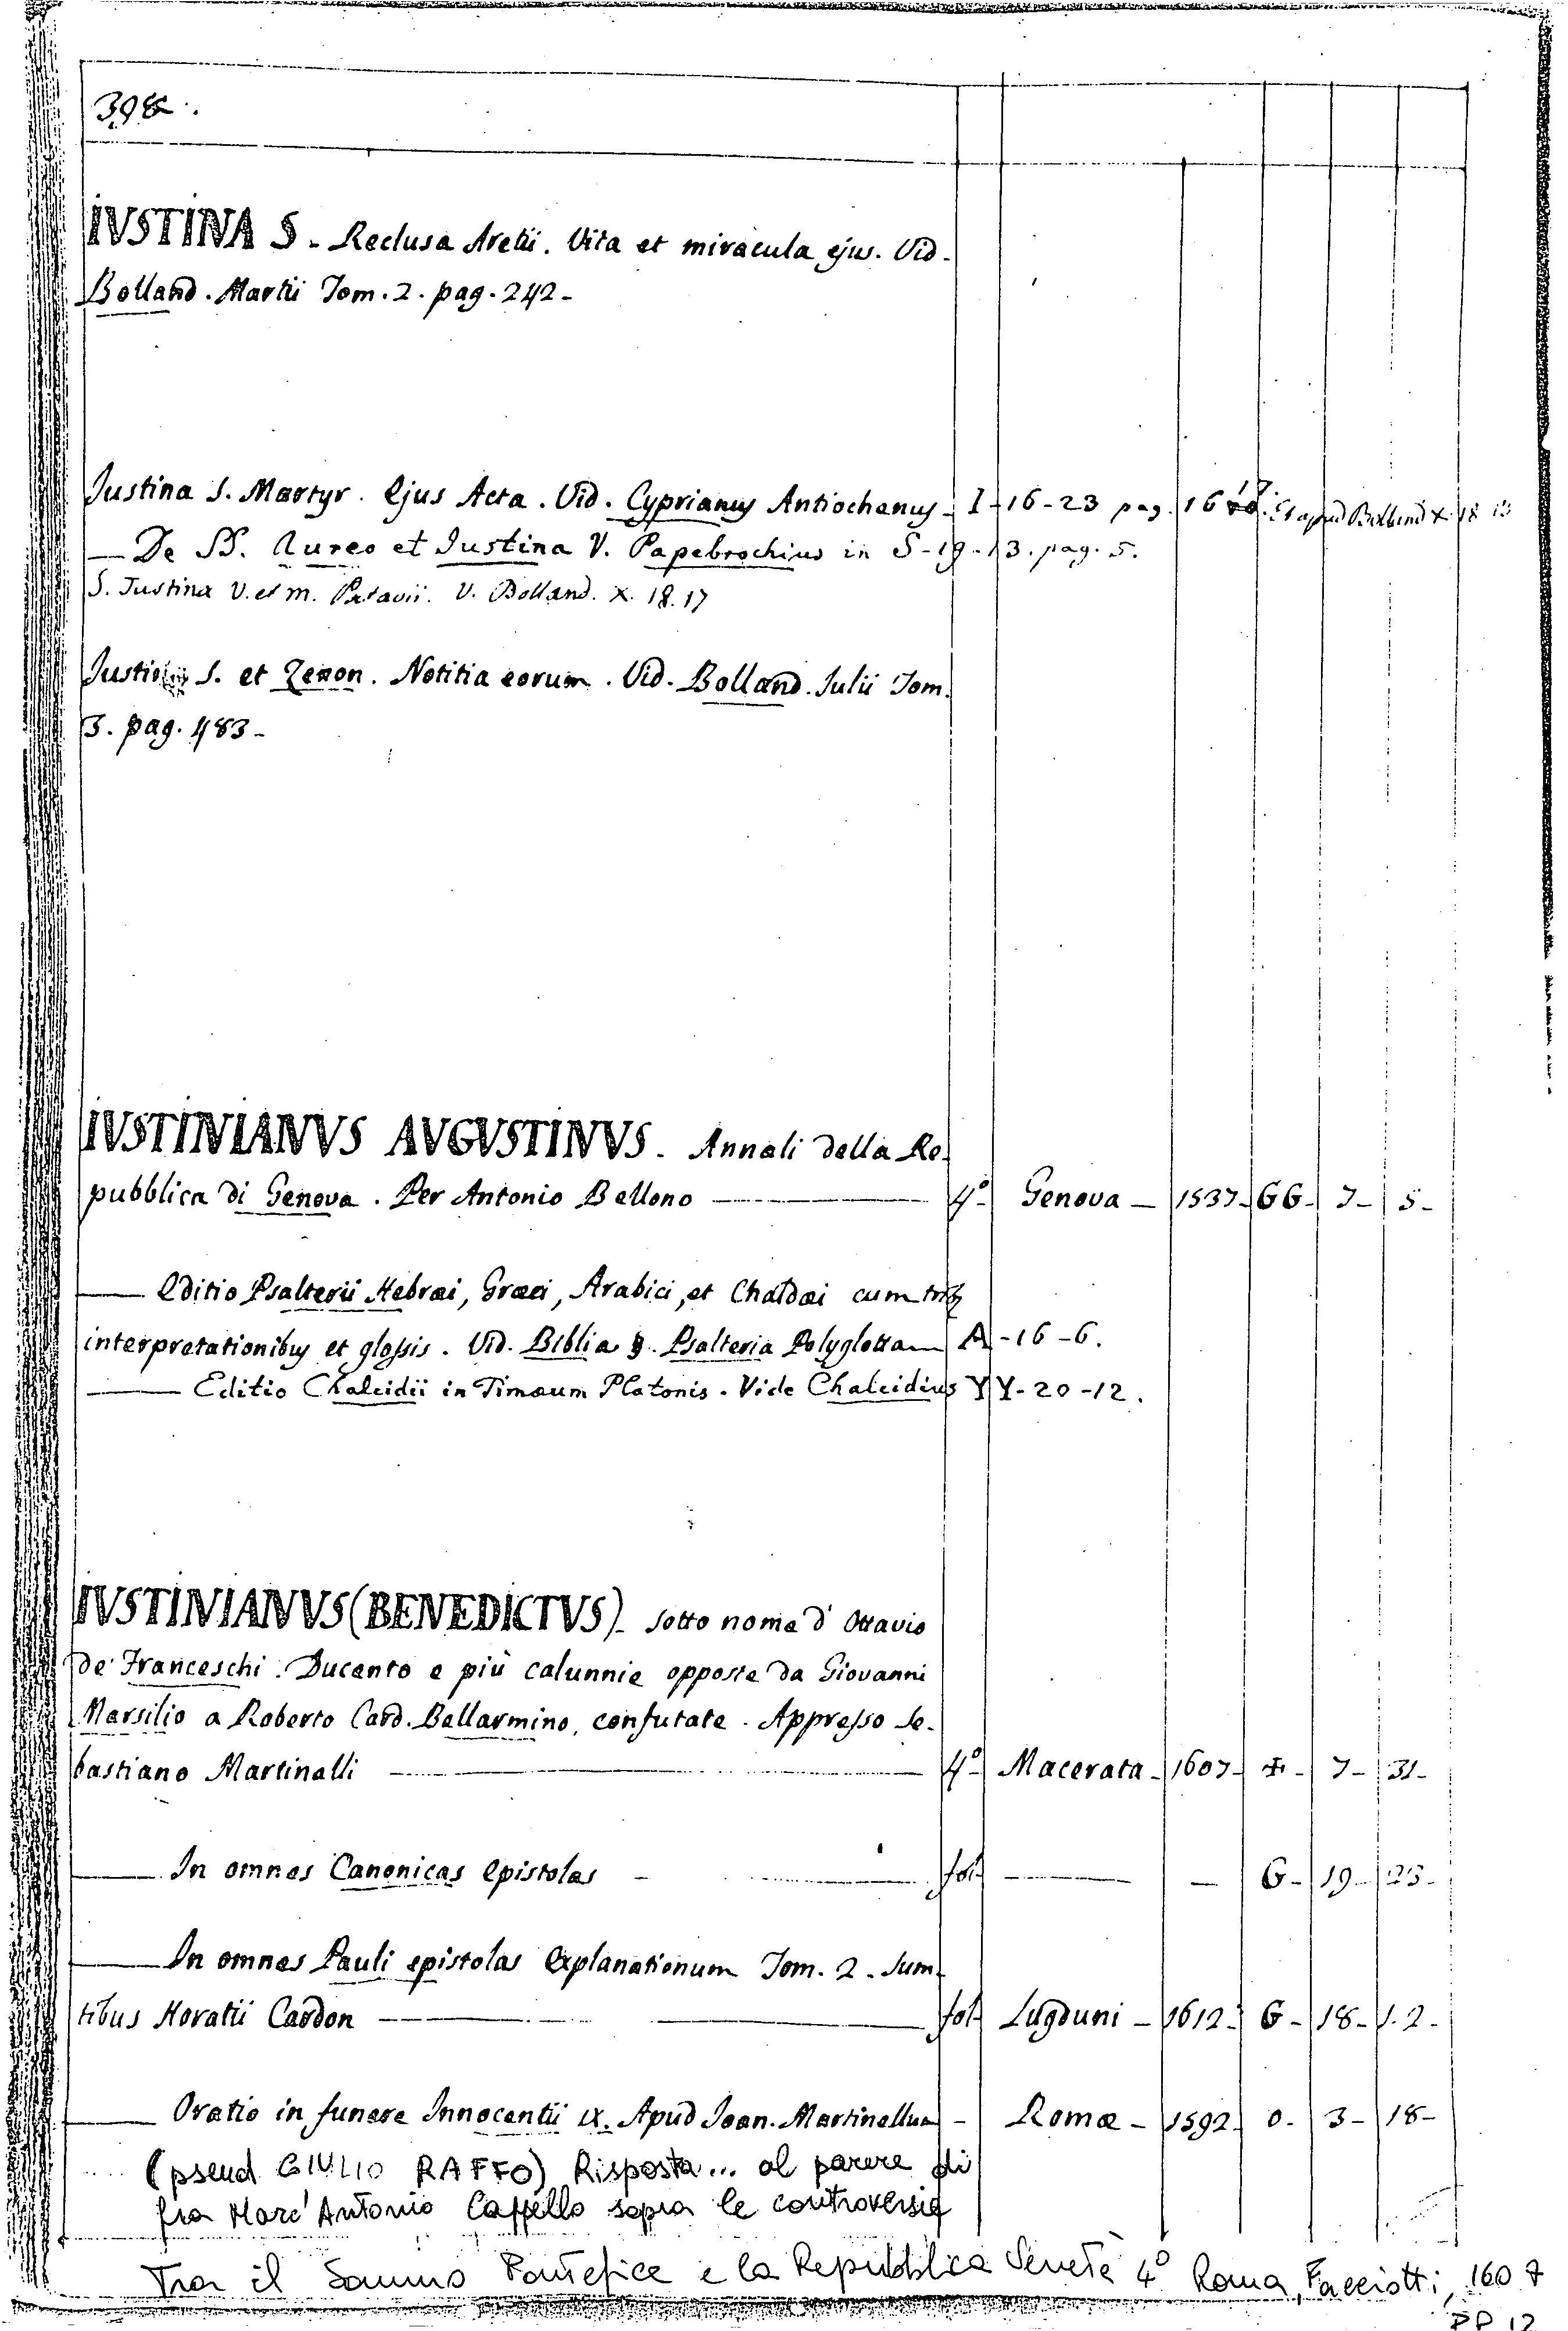 398.
IVSTINA S. Reclusa Aretii. Vita et miracula ejus. Vid.
Bolland. Martii Tom. 2. pag. 242-
Justina S. Martyr. Ejus Acta. Vid. Cyprianus Antiochenus I-16-23 pag. 16 Et apud Bolland X. 18
— De SS. Aureo et Justina V. Papebrochius in S-19-13. pag. 5.
S. Justina V. et m. Patavii. V. Bolland. X. 18. 17
S. et Zenon. Notitia eorum. Vid. Bolland. Julii Tom.
3. pag. 483-
IVSTINIANVS AVGVSTINVS. Annali della Re-
pubblica di Genova. Per Antonio Bellono — 4º- Genova — 1537- GG- 7- 5-
— Editio Psalterii Hebræi, Græci, Arabici, et Chaldæi cum trib
interpretationibus et glossis. Vid. Biblia §. Psalteria Polyglotta A-16-6.
— Editio Chalcidii in Timæum Platonis. Vide Chalcidius YY-20-12.
IVSTINIANVS (BENEDICTVS)- Sotto nome d' Ottavio
de' Franceschi. Ducento e più calunnie opposte da Giovanni
Marsilio a Roberto Card. Bellarmino, confutate. Appresso Se-
bastiano Martinelli — 4º- Macerata- 1607- ✠- 7- 31-
— In omnes Canonicas epistolas — fol- — — G- 19- 23-
— In omnes Pauli epistolas explanationum Tom. 2. Sum-
tibus Horatii Cardon — fol- Lugduni - 1612- G- 18- 1.2-
— Oratio in funere Innocentii IX. Apud Joan. Martinellum - Romæ - 1592- O- 3- 18-
(pseud GIULIO RAFFO) Risposta... al parere di
fra Marc'Antonio Cappello sopra le controversie
Tra il Sommo Pontefice e la Repubblica Veneta 4º Roma, Facciotti, 1607
PP 12